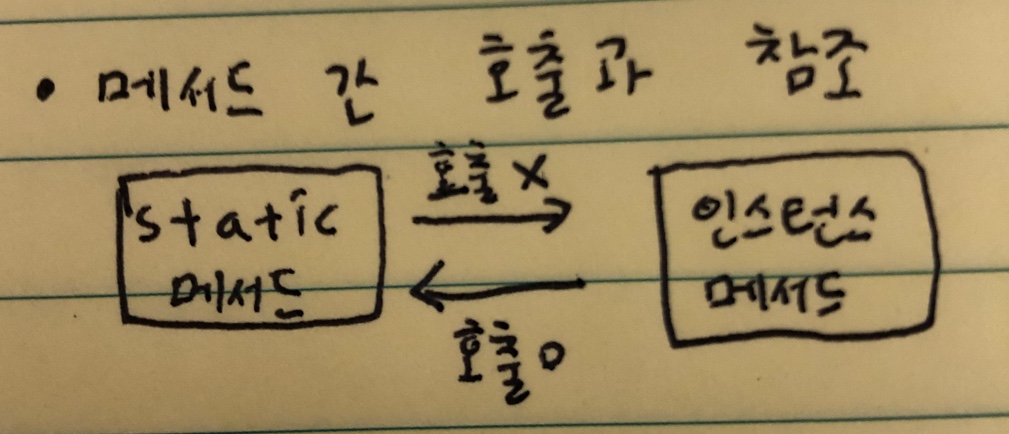 • 메서드 간 호출과 참조
호출 X
static
메서드
인스턴스
메서드
호출 O